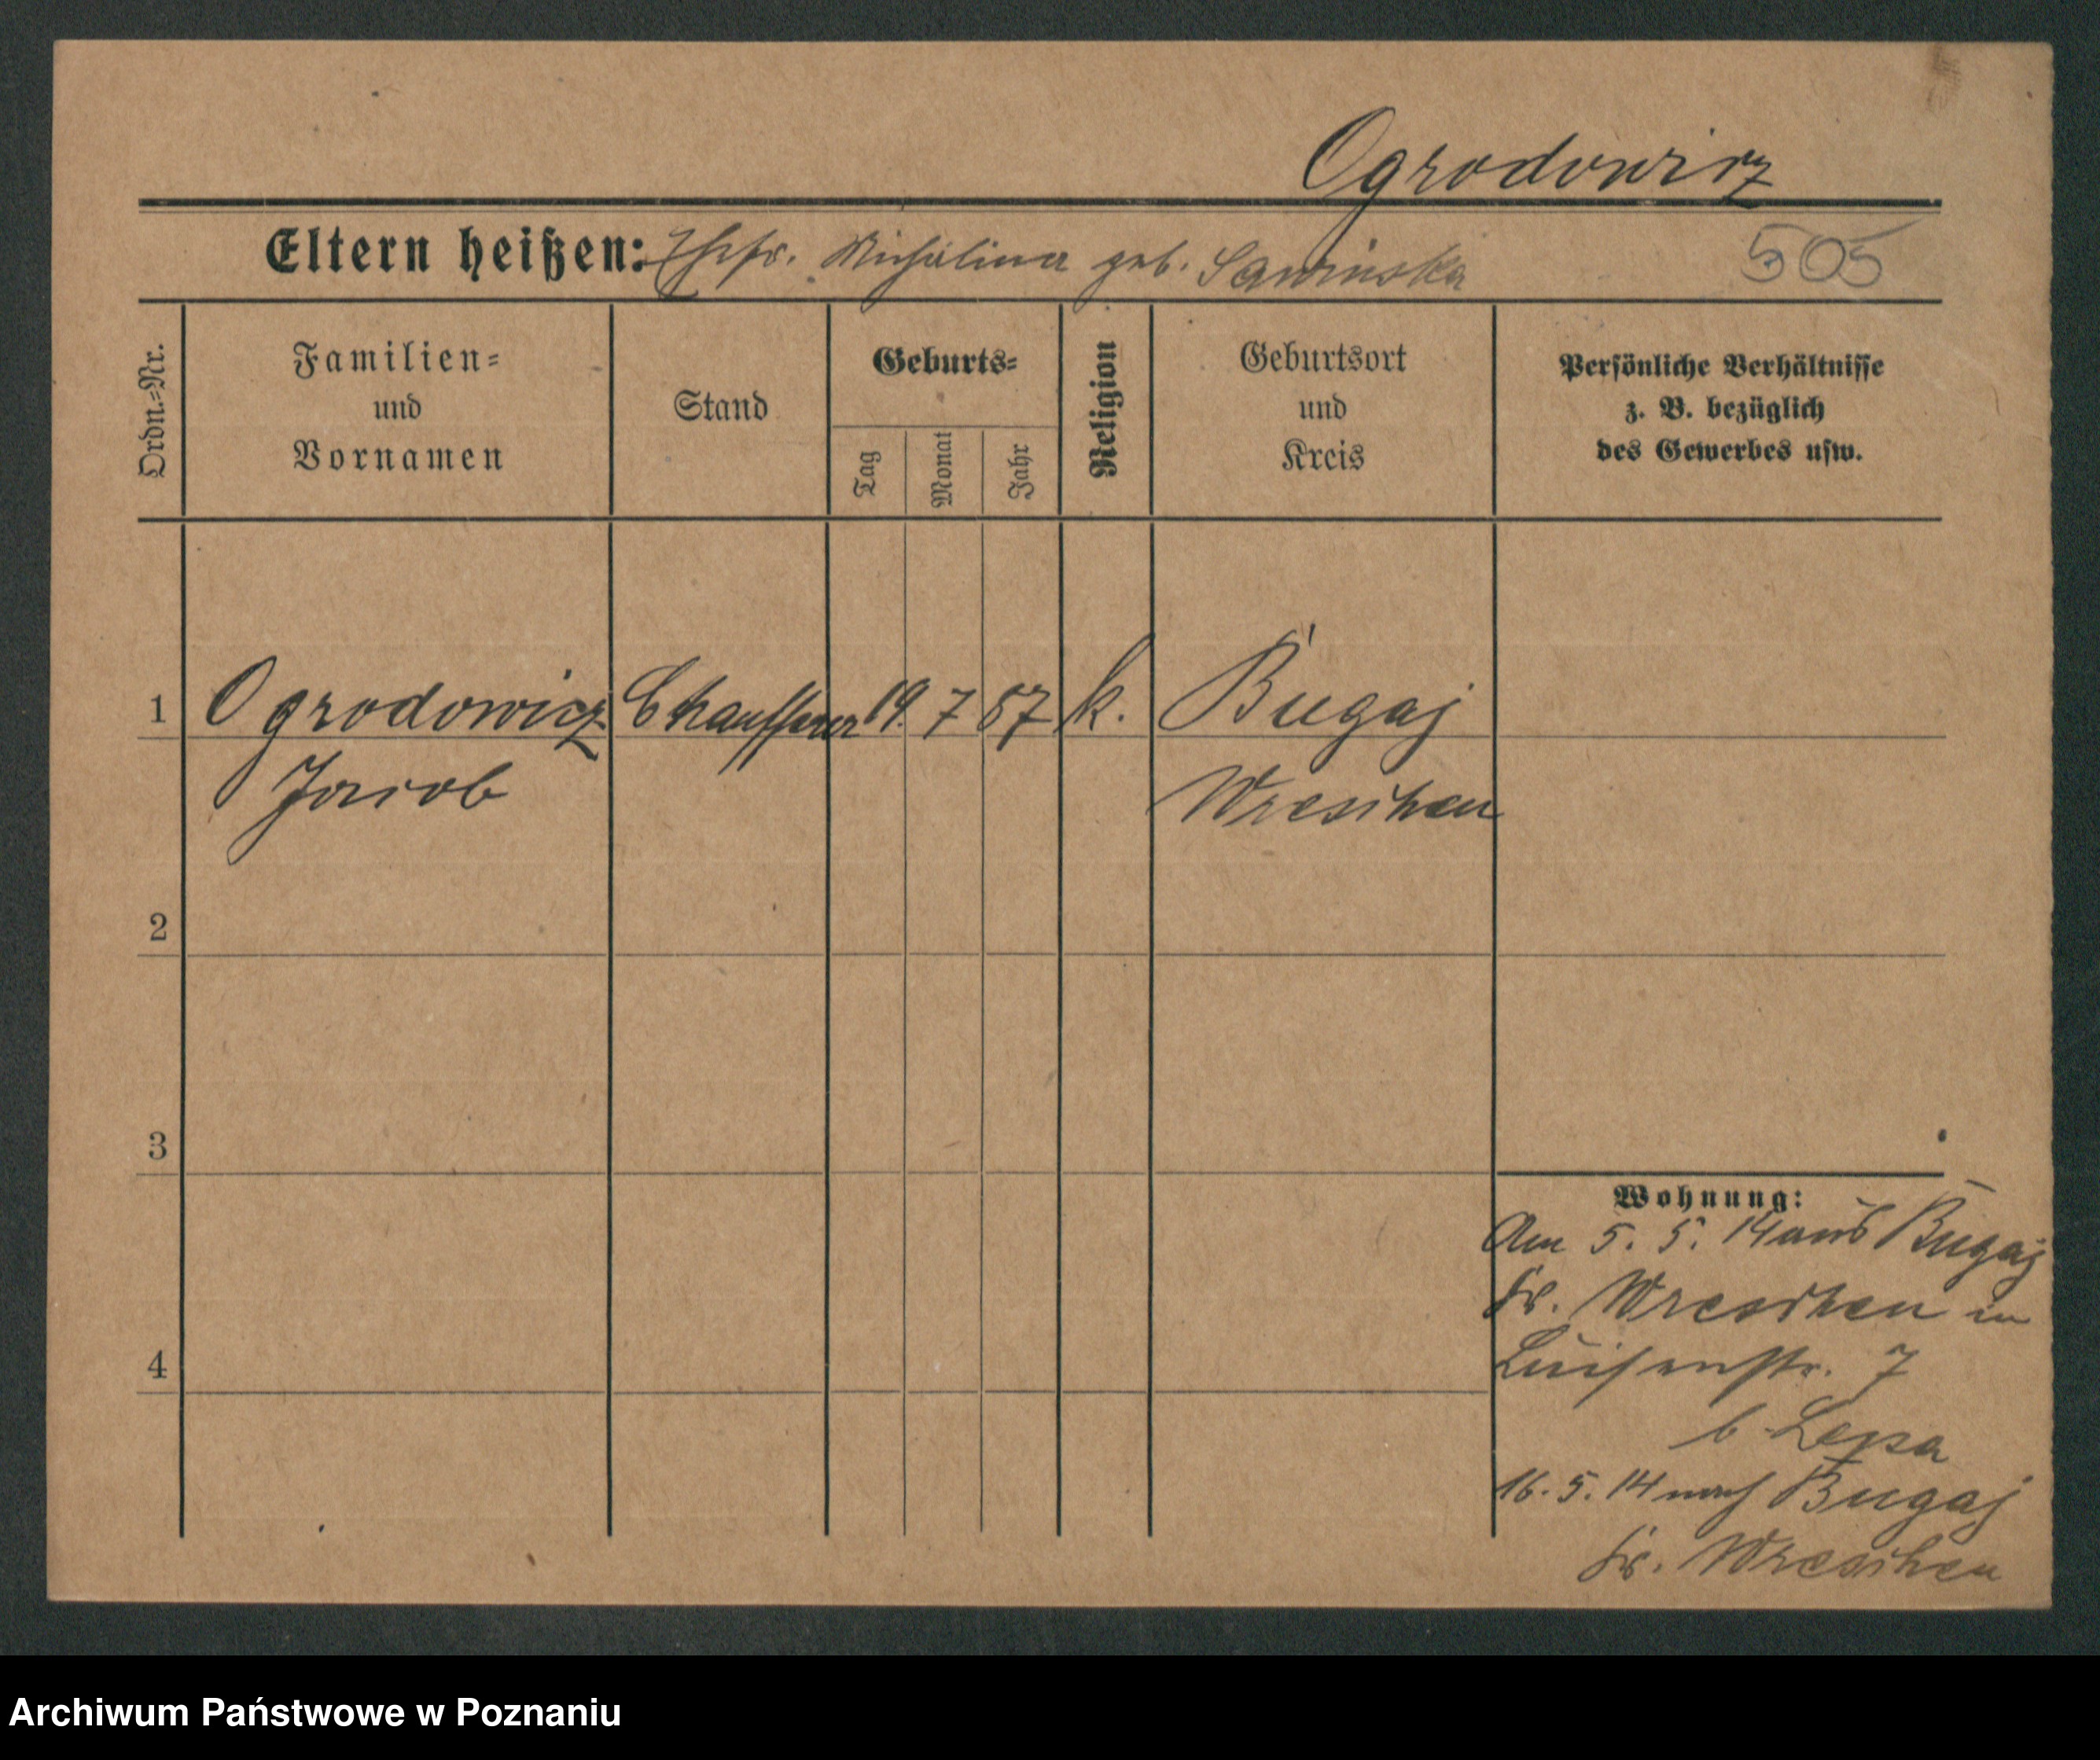 Ogrodowicz
Eltern heißen: Ehefr. Michalina geb. Sawinska 505
Ordn.-Nr.
Familien-
und
Vornamen
Stand
Geburts-
Tag
Monat
Jahr
Religion
Geburtsort
und
Kreis
Persönliche Verhältnisse
z. B. bezüglich
des Gewerbes usw.
1 Ogrodowicz Chauffeur 19. 7 87 k. Bugaj
Jacob Wreschen
2
3
4
Wohnung:
Am 5. 5. 14 aus Bugaj
Kr. Wreschen in
Luisenstr. 7
b
16. 5. 14 nach Bugaj
Kr. Wreschen
Archiwum Państwowe w Poznaniu